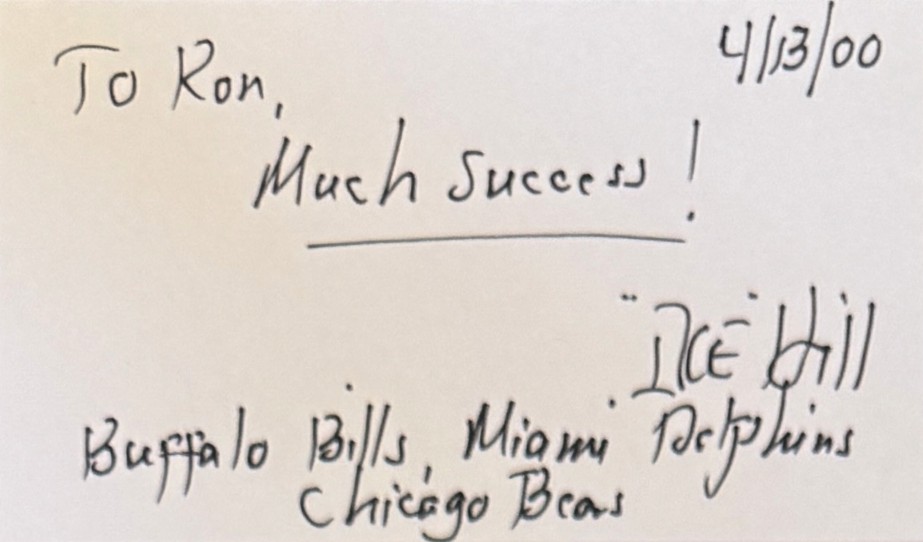 4/13/00
To Ron,
Much Success!
"ICE" Hill
Buffalo Bills, Miami Dolphins
Chicago Bears